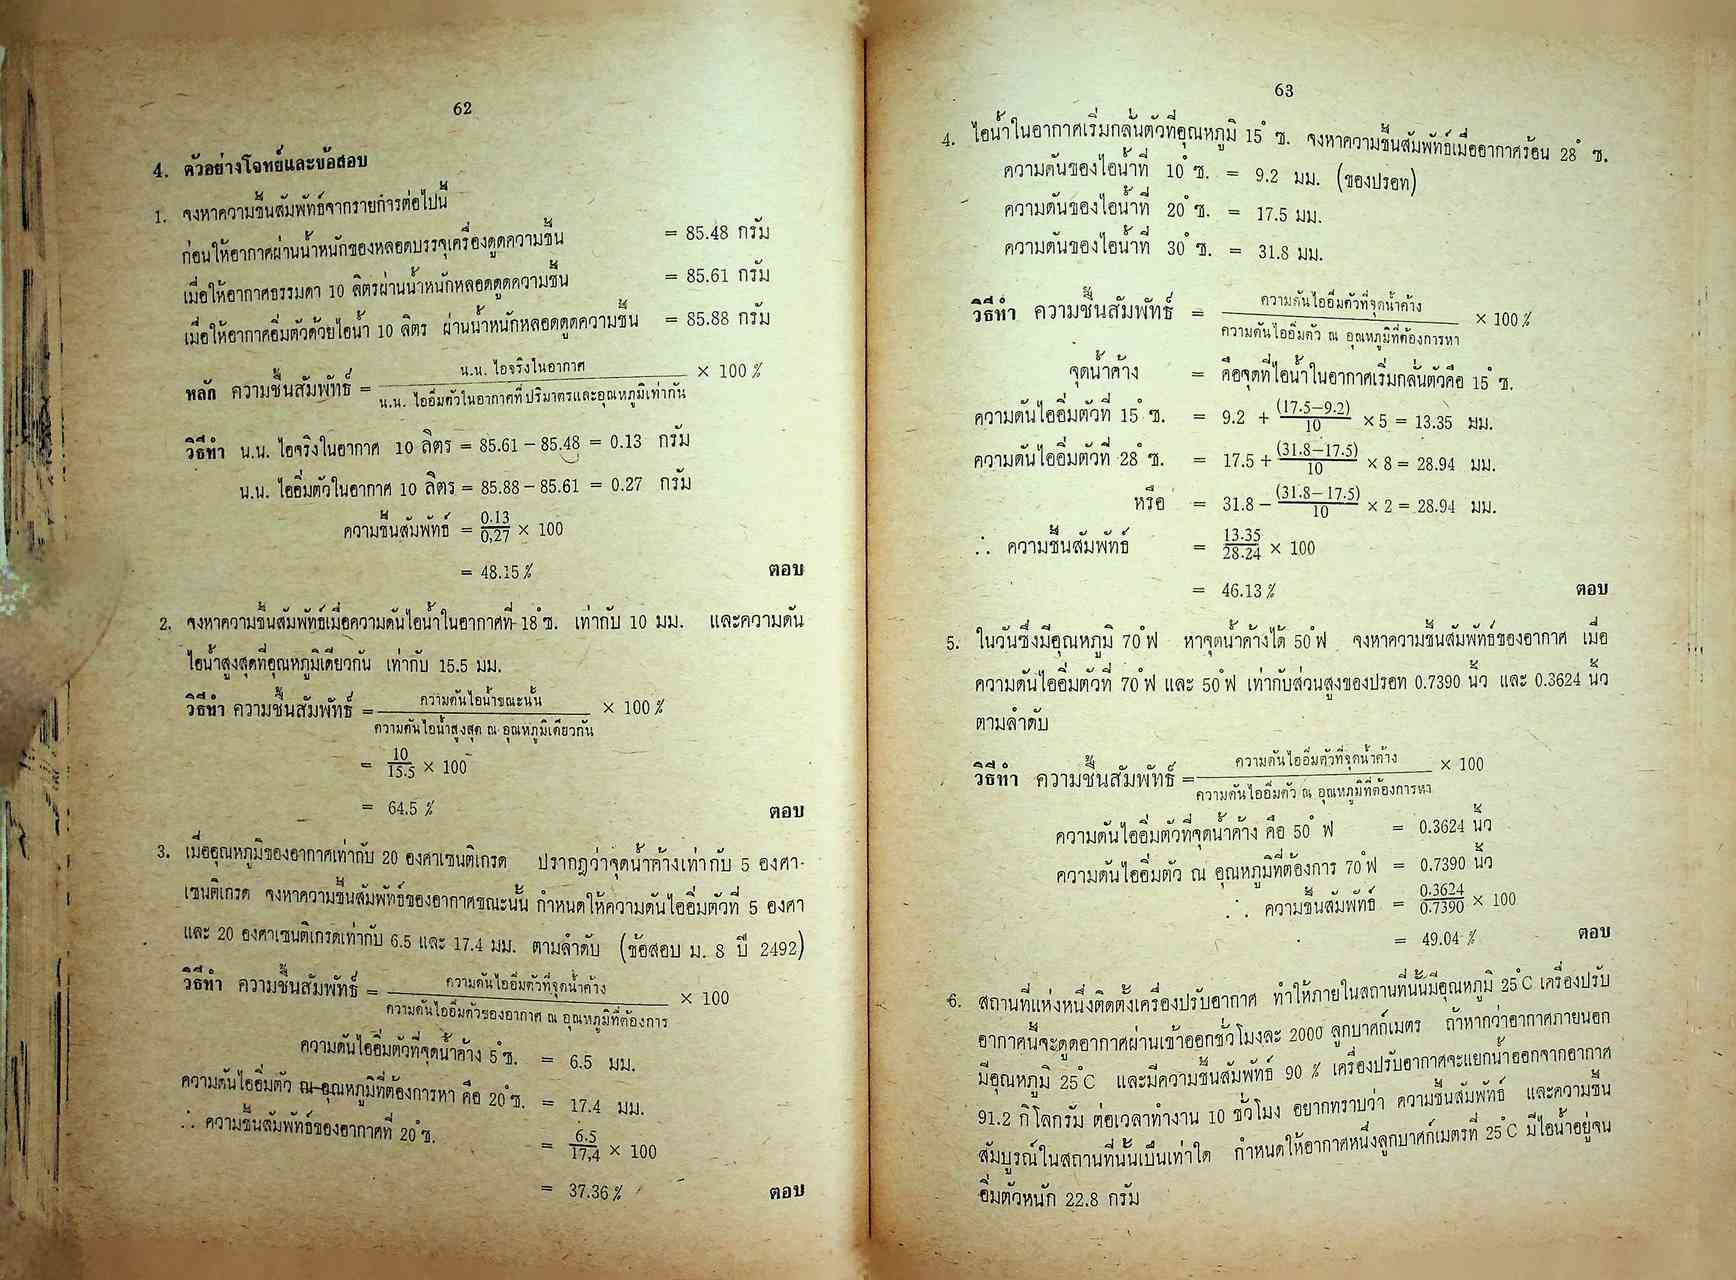 62
4. ตัวอย่างโจทย์และข้อสอบ
1. จงหาความชื้นสัมพัทธ์จากรายการต่อไปนี้
ก่อนให้อากาศผ่านน้ำหนักของหลอดบรรจุเครื่องดูดความชื้น = 85.48 กรัม
เมื่อให้อากาศธรรมดา 10 ลิตรผ่านน้ำหนักหลอดดูดความชื้น = 85.61 กรัม
เมื่อให้อากาศอิ่มตัวด้วยไอน้ำ 10 ลิตร ผ่านน้ำหนักหลอดดูดความชื้น = 85.88 กรัม
น.น. ไอจริงในอากาศ
หลัก ความชื้นสัมพัทธ์ = × 100 %
น.น. ไออิ่มตัวในอากาศที่ปริมาตรและอุณหภูมิเท่ากัน
วิธีทำ น.น. ไอจริงในอากาศ 10 ลิตร = 85.61 – 85.48 = 0.13 กรัม
น.น. ไออิ่มตัวในอากาศ 10 ลิตร = 85.88 – 85.61 = 0.27 กรัม
ความชื้นสัมพัทธ์ = 0.13/0,27 × 100
= 48.15 % ตอบ
2. จงหาความชื้นสัมพัทธ์เมื่อความดันไอน้ำในอากาศที่ 18°ซ. เท่ากับ 10 มม. และความดัน
ไอน้ำสูงสุดที่อุณหภูมิเดียวกัน เท่ากับ 15.5 มม.
ความดันไอน้ำขณะนั้น
วิธีทำ ความชื้นสัมพัทธ์ = × 100 %
ความดันไอน้ำสูงสุด ณ อุณหภูมิเดียวกัน
= 10/15.5 × 100
= 64.5 % ตอบ
3. เมื่ออุณหภูมิของอากาศเท่ากับ 20 องศาเซนติเกรด ปรากฏว่าจุดน้ำค้างเท่ากับ 5 องศา-
เซนติเกรด จงหาความชื้นสัมพัทธ์ของอากาศขณะนั้น กำหนดให้ความดันไออิ่มตัวที่ 5 องศา
และ 20 องศาเซนติเกรดเท่ากับ 6.5 และ 17.4 มม. ตามลำดับ (ข้อสอบ ม. 8 ปี 2492)
ความดันไออิ่มตัวที่จุดน้ำค้าง
วิธีทำ ความชื้นสัมพัทธ์ = × 100
ความดันไออิ่มตัวของอากาศ ณ อุณหภูมิที่ต้องการ
ความดันไออิ่มตัวที่จุดน้ำค้าง 5°ซ. = 6.5 มม.
ความดันไออิ่มตัว ณ อุณหภูมิที่ต้องการหา คือ 20°ซ. = 17.4 มม.
∴ ความชื้นสัมพัทธ์ของอากาศที่ 20°ซ. = 6.5/17,4 × 100
= 37.36 % ตอบ
63
4. ไอน้ำในอากาศเริ่มกลั่นตัวที่อุณหภูมิ 15° ซ. จงหาความชื้นสัมพัทธ์เมื่ออากาศร้อน 28° ซ.
ความดันของไอน้ำที่ 10°ซ. = 9.2 มม. (ของปรอท)
ความดันของไอน้ำที่ 20°ซ. = 17.5 มม.
ความดันของไอน้ำที่ 30°ซ. = 31.8 มม.
ความดันไออิ่มตัวที่จุดน้ำค้าง
วิธีทำ ความชื้นสัมพัทธ์ = × 100 %
ความดันไออิ่มตัว ณ อุณหภูมิที่ต้องการหา
จุดน้ำค้าง = คือจุดที่ไอน้ำในอากาศเริ่มกลั่นตัวคือ 15°ซ.
ความดันไออิ่มตัวที่ 15°ซ. = 9.2 + (17.5–9.2)/10 × 5 = 13.35 มม.
ความดันไออิ่มตัวที่ 28°ซ. = 17.5 + (31.8–17.5)/10 × 8 = 28.94 มม.
หรือ = 31.8 – (31.8–17.5)/10 × 2 = 28.94 มม.
∴ ความชื้นสัมพัทธ์ = 13.35/28.24 × 100
= 46.13 % ตอบ
5. ในวันซึ่งมีอุณหภูมิ 70°ฟ หาจุดน้ำค้างได้ 50°ฟ จงหาความชื้นสัมพัทธ์ของอากาศ เมื่อ
ความดันไออิ่มตัวที่ 70°ฟ และ 50°ฟ เท่ากับส่วนสูงของปรอท 0.7390 นิ้ว และ 0.3624 นิ้ว
ตามลำดับ
ความดันไออิ่มตัวที่จุดน้ำค้าง
วิธีทำ ความชื้นสัมพัทธ์ = × 100
ความดันไออิ่มตัว ณ อุณหภูมิที่ต้องการหา
ความดันไออิ่มตัวที่จุดน้ำค้าง คือ 50° ฟ = 0.3624 นิ้ว
ความดันไออิ่มตัว ณ อุณหภูมิที่ต้องการ 70°ฟ = 0.7390 นิ้ว
∴ ความชื้นสัมพัทธ์ = 0.3624/0.7390 × 100
= 49.04 % ตอบ
6. สถานที่แห่งหนึ่งติดตั้งเครื่องปรับอากาศ ทำให้ภายในสถานที่นั้นมีอุณหภูมิ 25°C เครื่องปรับ
อากาศนี้จะดูดอากาศผ่านเข้าออกชั่วโมงละ 2000 ลูกบาศก์เมตร ถ้าหากว่าอากาศภายนอก
มีอุณหภูมิ 25°C และมีความชื้นสัมพัทธ์ 90 % เครื่องปรับอากาศจะแยกน้ำออกจากอากาศ
91.2 กิโลกรัม ต่อเวลาทำงาน 10 ชั่วโมง อยากทราบว่า ความชื้นสัมพัทธ์ และความชื้น
สัมบูรณ์ในสถานที่นั้นเป็นเท่าใด กำหนดให้อากาศหนึ่งลูกบาศก์เมตรที่ 25°C มีไอน้ำอยู่จน
อิ่มตัวหนัก 22.8 กรัม